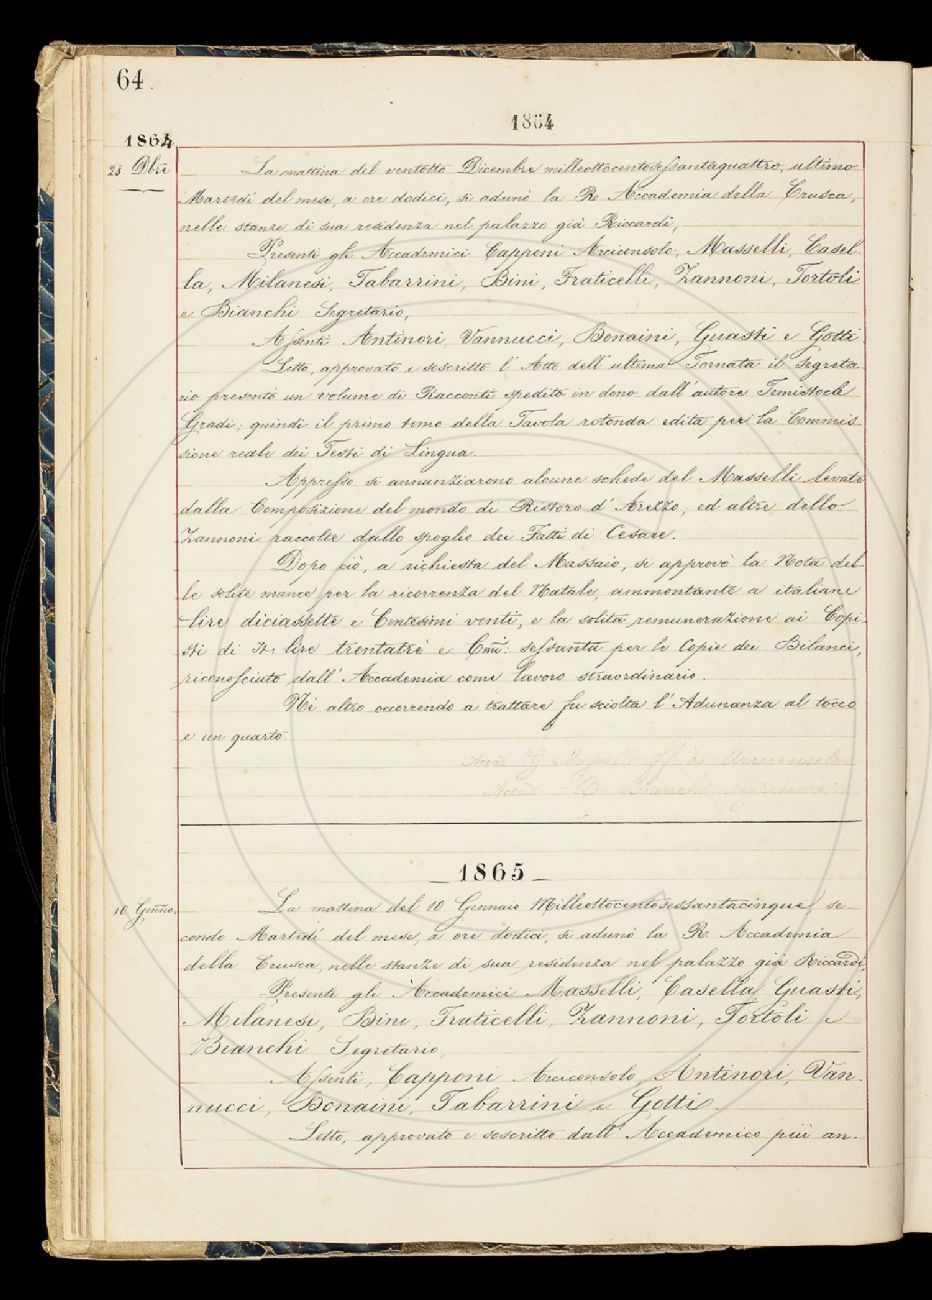 64.
1864
1864
28 Dbre
La mattina del ventotto Dicembre milleottocentosessantaquattro, ultimo
Martedí del mese, a ore dodici, si adunò la R. Accademia della Crusca,
nelle stanze di sua residenza nel palazzo già Riccardi,
Presenti gli Accademici Capponi Arciconsolo, Masselli, Casel-
la, Milanesi, Tabarrini, Bini, Fraticelli, Zannoni, Tortoli
e Bianchi Segretario,
Assenti Antinori, Vannucci, Bonaini, Guasti e Gotti
Letto, approvato e soscritto l'Atto dell'ultima Tornata il Segreta-
rio presentò un volume di Racconti spedito in dono dall'autore Temistocle
Gradi; quindi il primo tomo della Tavola rotonda edita per la Commis-
sione reale dei Testi di Lingua.
Appresso si annunziarono alcune schede del Masselli levate
dalla Composizione del mondo di Ristoro d'Arezzo, ed altre dello
Zannoni raccolte dallo spoglio dei Fatti di Cesare.
Dopo ciò, a richiesta del Massaio, si approvò la Nota del-
le solite mance per la ricorrenza del Natale, ammontante a italiane
lire diciassette e Centesimi venti, e la solita remunerazione ai Copi-
sti di It. lire trentatrè e Cmi: sessanta per le Copie dei Bilanci,
riconosciuto dall'Accademia come lavoro straordinario.
Ni altro occorrendo a trattare fu sciolta l'Adunanza al tocco
e un quarto.
Accad. G. Masselli ff. di Arciconsolo
Accad. B. Bianchi Segretario
1865
10 Genno.
La mattina del 10 Gennaio Milleottocentosessantacinque, se-
condo Martedí del mese, a ore dodici, si adunò la R. Accademia
della Crusca, nelle stanze di sua residenza nel palazzo già Riccardi,
Presenti gli Accademici Masselli, Casella, Guasti,
Milanesi, Bini, Fraticelli, Zannoni, Tortoli e
Bianchi Segretario,
Assenti, Capponi Arciconsolo, Antinori, Van-
nucci, Bonaini, Tabarrini e Gotti.
Letto, approvato e soscritto dall'Accademico piú an-